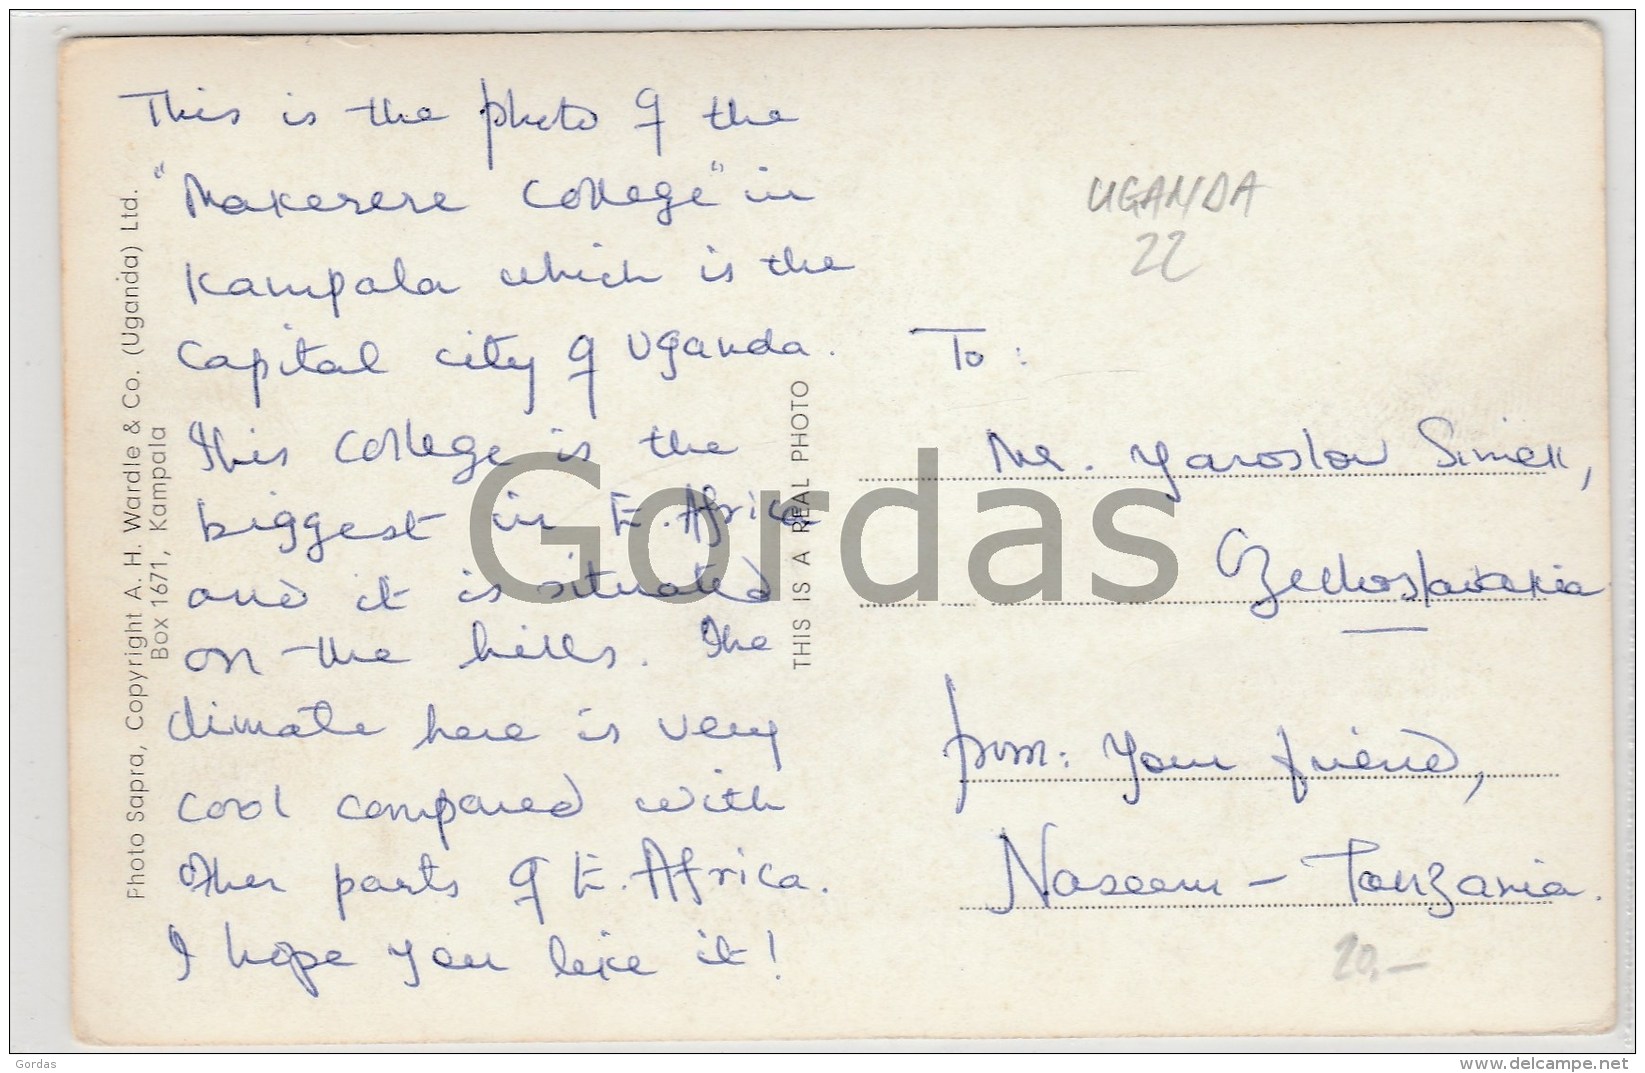 This is the photo of the
"Makerere College" in
Kampala which is the
Capital city of Uganda.
This College is the
biggest in E. Africa
and it is situated
on the hills. The
climate here is very
cool compared with
other parts of E. Africa.
I hope you like it!
Photo Sapra, Copyright A. H. Wardle & Co. (Uganda) Ltd.
Box 1671, Kampala
THIS IS A REAL PHOTO
UGANDA
22
To:
Mr. Yaroslav Simek,
Czechoslavakia
from: Your friend,
Naseem - Tanzania.
20,-
Gordas
Gordas
www.delcampe.net